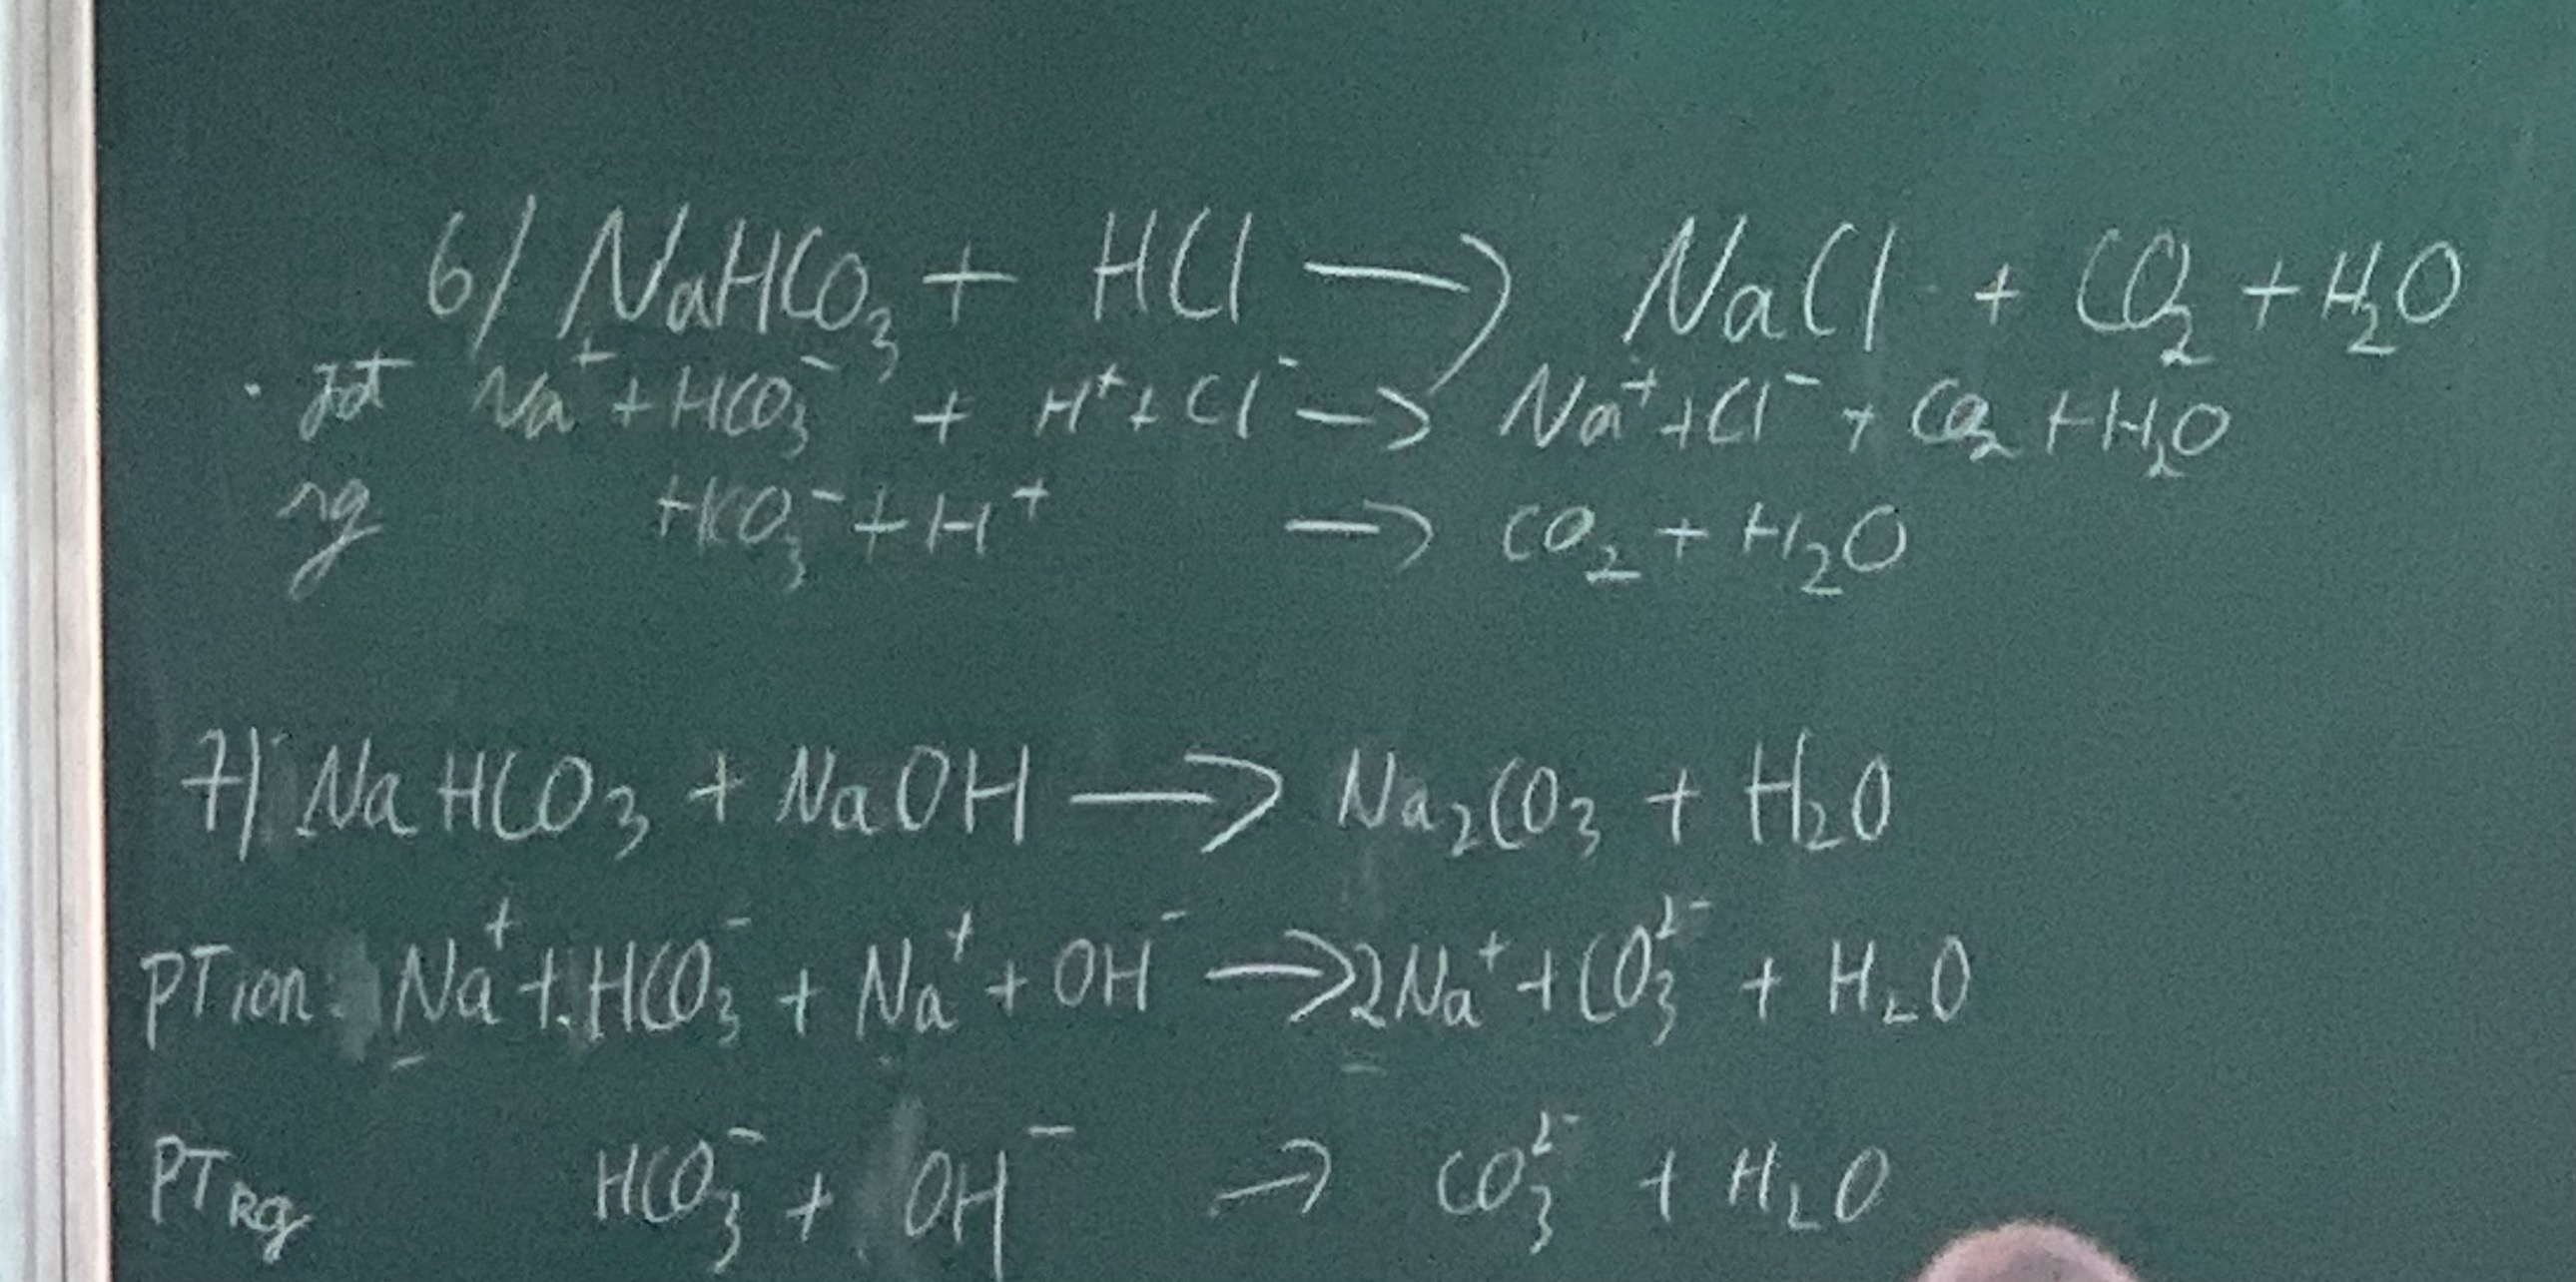 6/ NaHCO₃ + HCl → NaCl + CO₂ + H₂O
Na⁺ + HCO₃⁻ + H⁺ + Cl⁻ → Na⁺ + Cl⁻ + CO₂ + H₂O
rg HCO₃⁻ + H⁺ → CO₂ + H₂O
7/ NaHCO₃ + NaOH → Na₂CO₃ + H₂O
PT ion: Na⁺ + HCO₃⁻ + Na⁺ + OH⁻ → 2Na⁺ + CO₃²⁻ + H₂O
PT Rg HCO₃⁻ + OH⁻ → CO₃²⁻ + H₂O